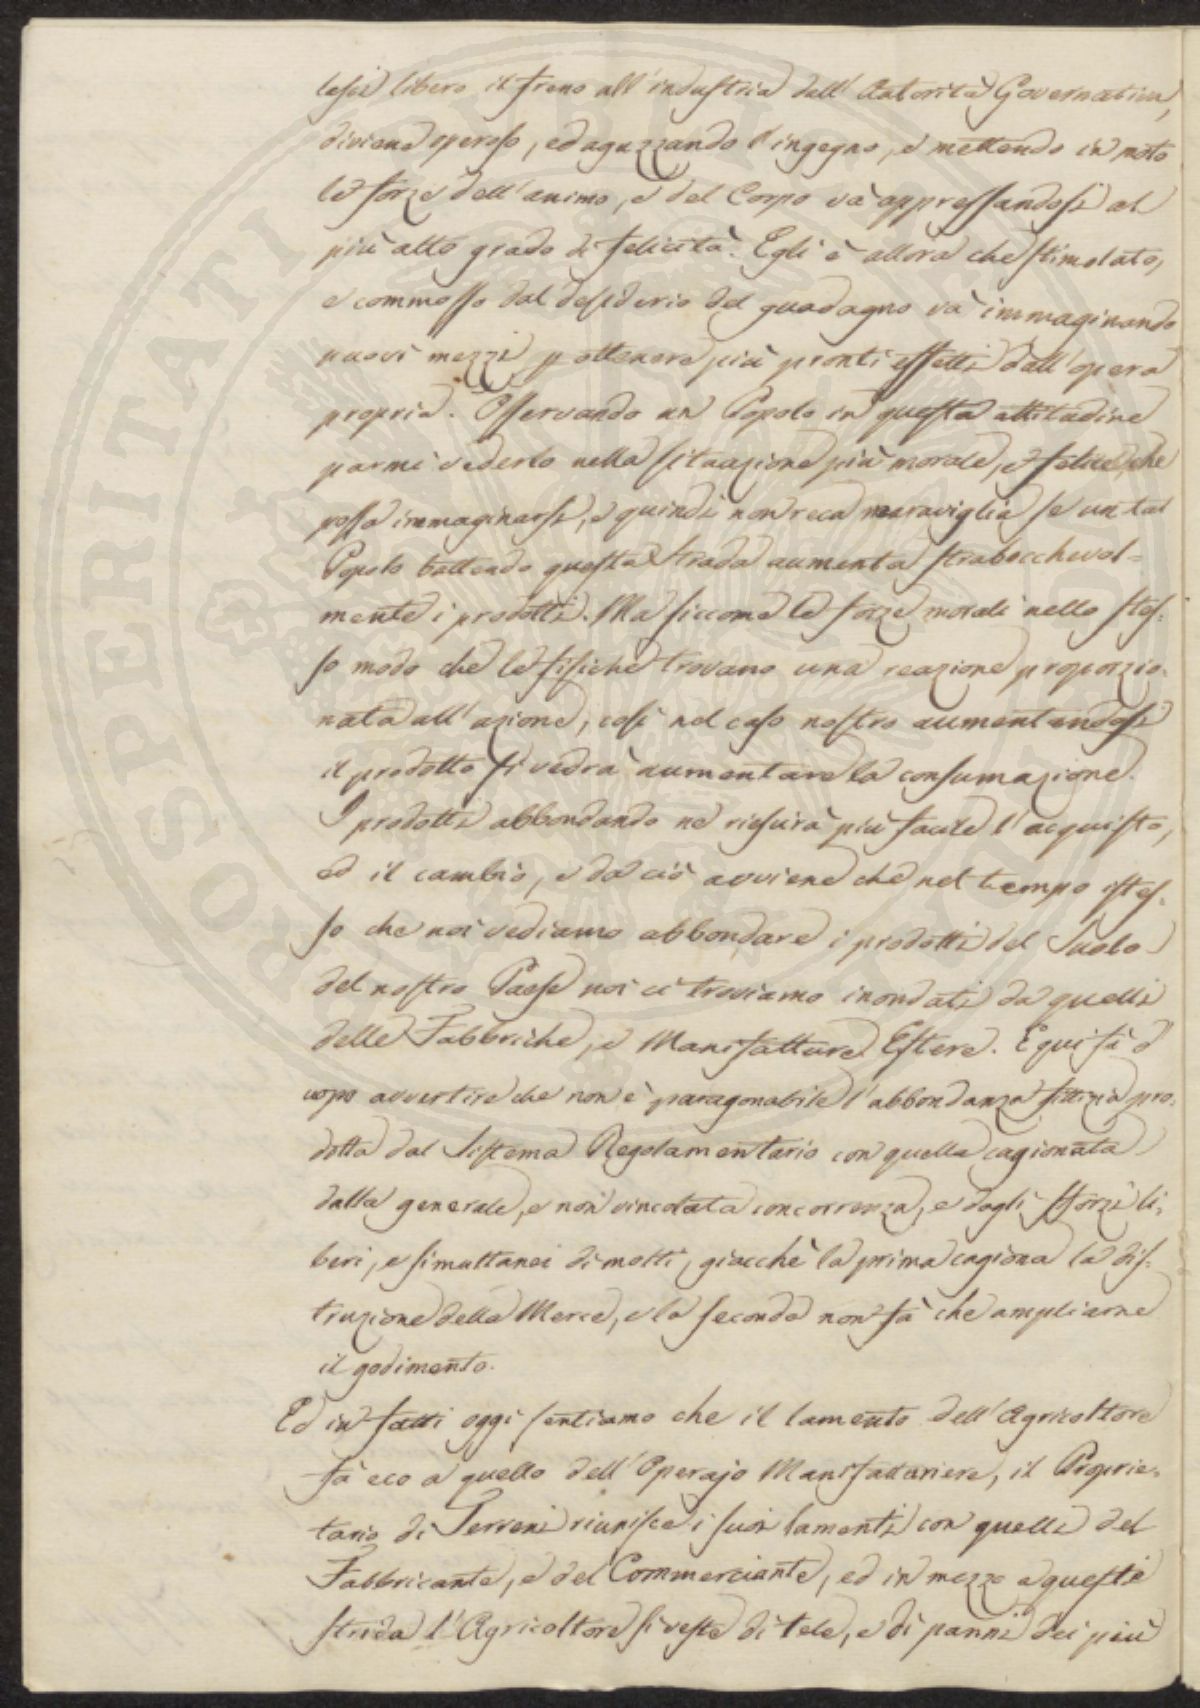 lasci libero il freno all'industria dall'Autorità Governativa,
diviene operoso, ed aguzzando l'ingegno, e mettendo in moto
le forze dell'animo, e del Corpo và appressandosi al
più alto grado di felicità. Egli è allora che stimolato,
e commosso dal desiderio del guadagno và immaginando
nuovi mezzi p ottenere più pronti effetti dall'opera
propria. Osservando un Popolo in questa attitudine
parmi vederlo nella situazione più morale, e felice, che
possa immaginarsi, e quindi non reca maraviglia se un tal
Popolo battendo questa strada aumenta strabocchevol=
mente i prodotti. Ma siccome le forze morali nello stes=
so modo che le fisiche trovano una reazione proporzio=
nata all'azione, così nel caso nostro aumentandosi
il prodotto si vedrà aumentare la consumazione.
I prodotti abbondando ne riescirà più facile l'acquisto,
ed il cambio, e da ciò avviene che nel tempo istes=
so che noi vediamo abbondare i prodotti del Suolo
del nostro Paese noi ci troviamo inondati da quelli
delle Fabbriche, e Manifatture Estere. E qui fà d'
uopo avvertire che non è paragonabile l'abbondanza fittizia pro=
dotta dal Sistema Regolamentario con quella cagionata
dalla generale, e non vincolata concorrenza, e dagli sforzi li=
beri, e simultanei di molti, giacchè la prima cagiona la dis=
truzione della Merce, e la seconda non fà che ampliarne
il godimento.
Ed in fatti oggi sentiamo che il lamento dell'Agricoltore
fà eco a quello dell'Operajo Manifatturiere, il Proprie=
tario di Terreni riunisce i suoi lamenti con quelli del
Fabbricante, e del Commerciante, ed in mezzo a queste
strida l'Agricoltore si veste di tele, e di panni dei più
PROSPERITATI